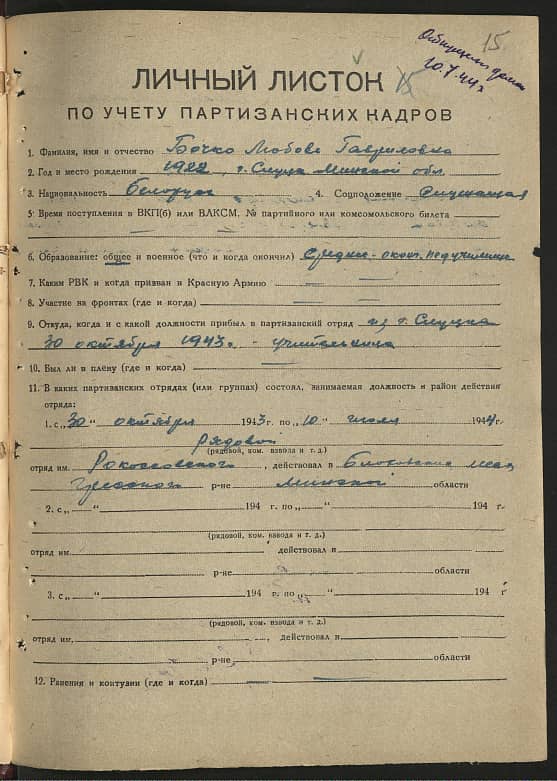 15.
10.7.44 г
ЛИЧНЫЙ ЛИСТОК 15
ПО УЧЕТУ ПАРТИЗАНСКИХ КАДРОВ
1. Фамилия, имя и отчество Бочко Любовь Гавриловна
2. Год и место рождения 1922, г. Слуцк Минской обл.
3. Национальность белорус 4. Соцположение Служащая
5. Время поступления в ВКП(б) или ВЛКСМ, № партийного или комсомольского билета
6. Образование: общее и военное (что и когда окончил) среднее - окон. педучилище
7. Каким РВК и когда призван в Красную Армию
8. Участие на фронтах (где и когда)
9. Откуда, когда и с какой должности прибыл в партизанский отряд из г. Слуцка
30 октября 1943 г. - учительница
10. Был ли в плену (где и когда)
11. В каких партизанских отрядах (или группах) состоял, занимаемая должность и район действия
отряда:
1. с „30“ октября 1943 г. по „10“ июля 1944 г.
рядовой
(рядовой, ком. взвода и т. д.)
отряд им. Рокоссовского, действовал в
Гресского р-не Минской области
2. с „ “ 194 г. по „ “ 194 г.
(рядовой, ком. взвода и т. д.)
отряд им. действовал в
р-не области
3. с „ “ 194 г. по „ “ 194 г
(рядовой, ком. взвода и т. д.)
отряд им. , действовал в
р-не области
12. Ранения и контузии (где и когда)